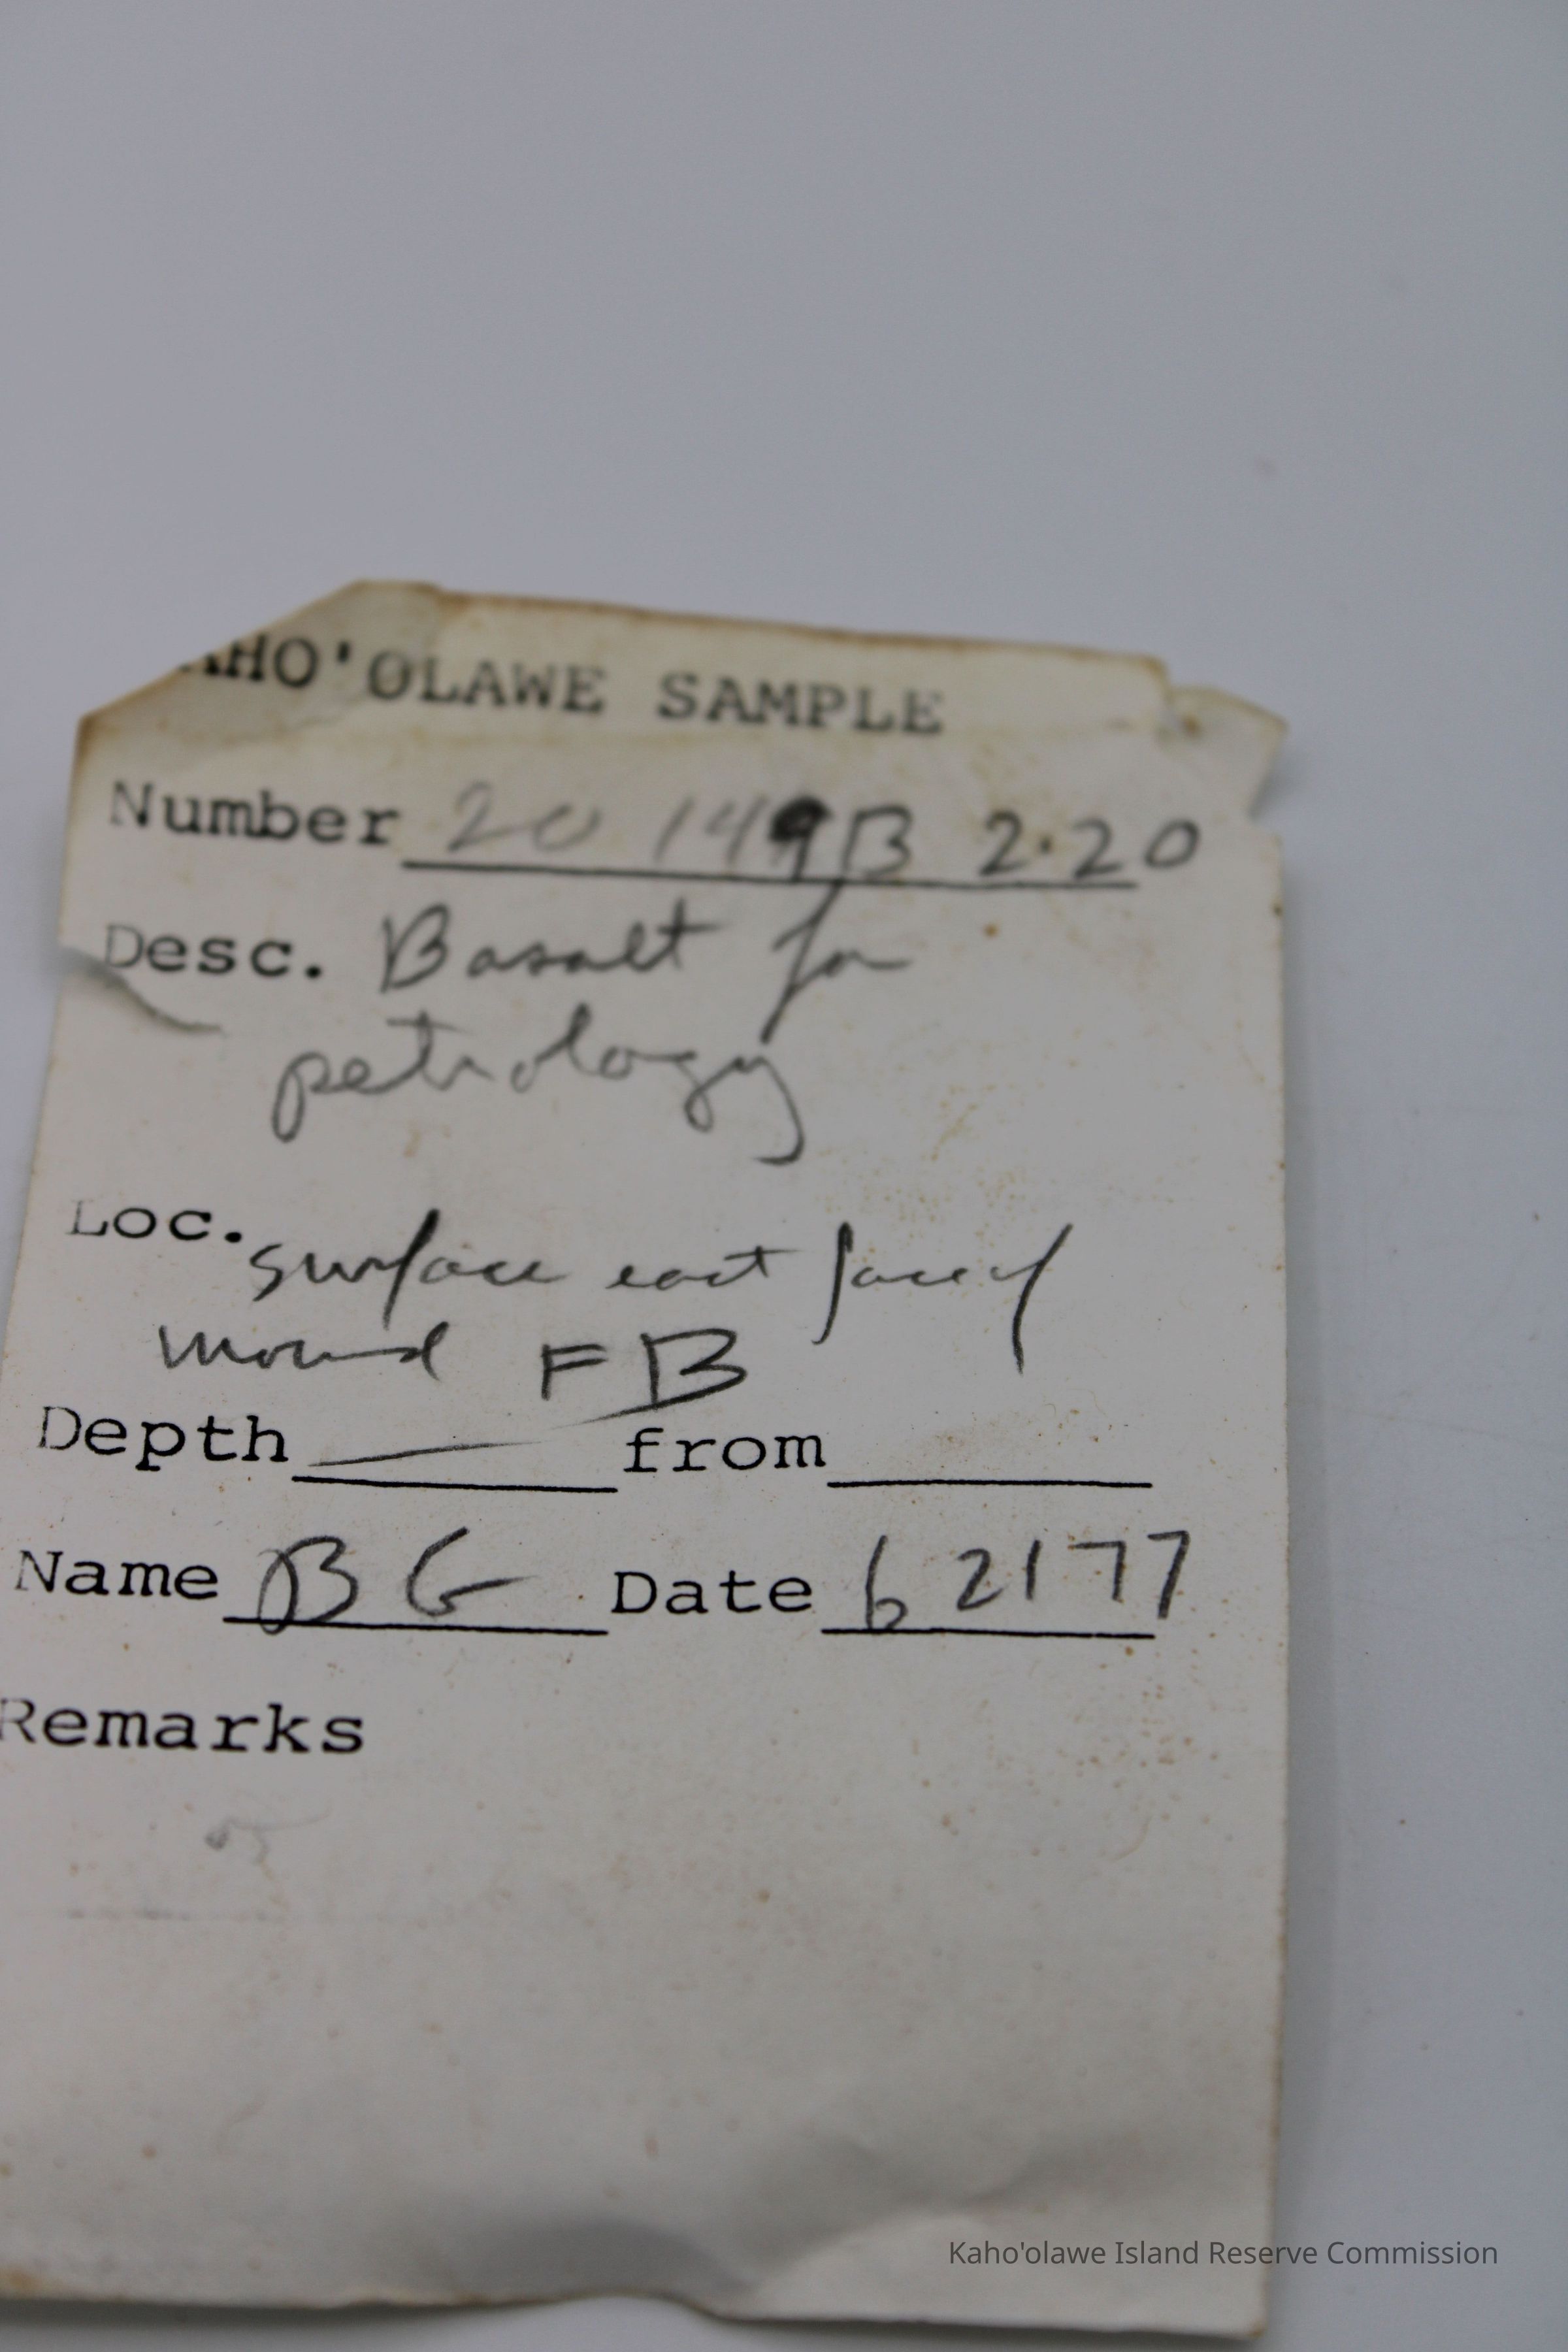 AHO'OLAWE SAMPLE
Number 20 149B 2.20
Desc. Basalt for
petrology
Loc. surface east face of
mound FB
Depth — from
Name BG Date 6 21 77
Remarks
Kaho'olawe Island Reserve Commission